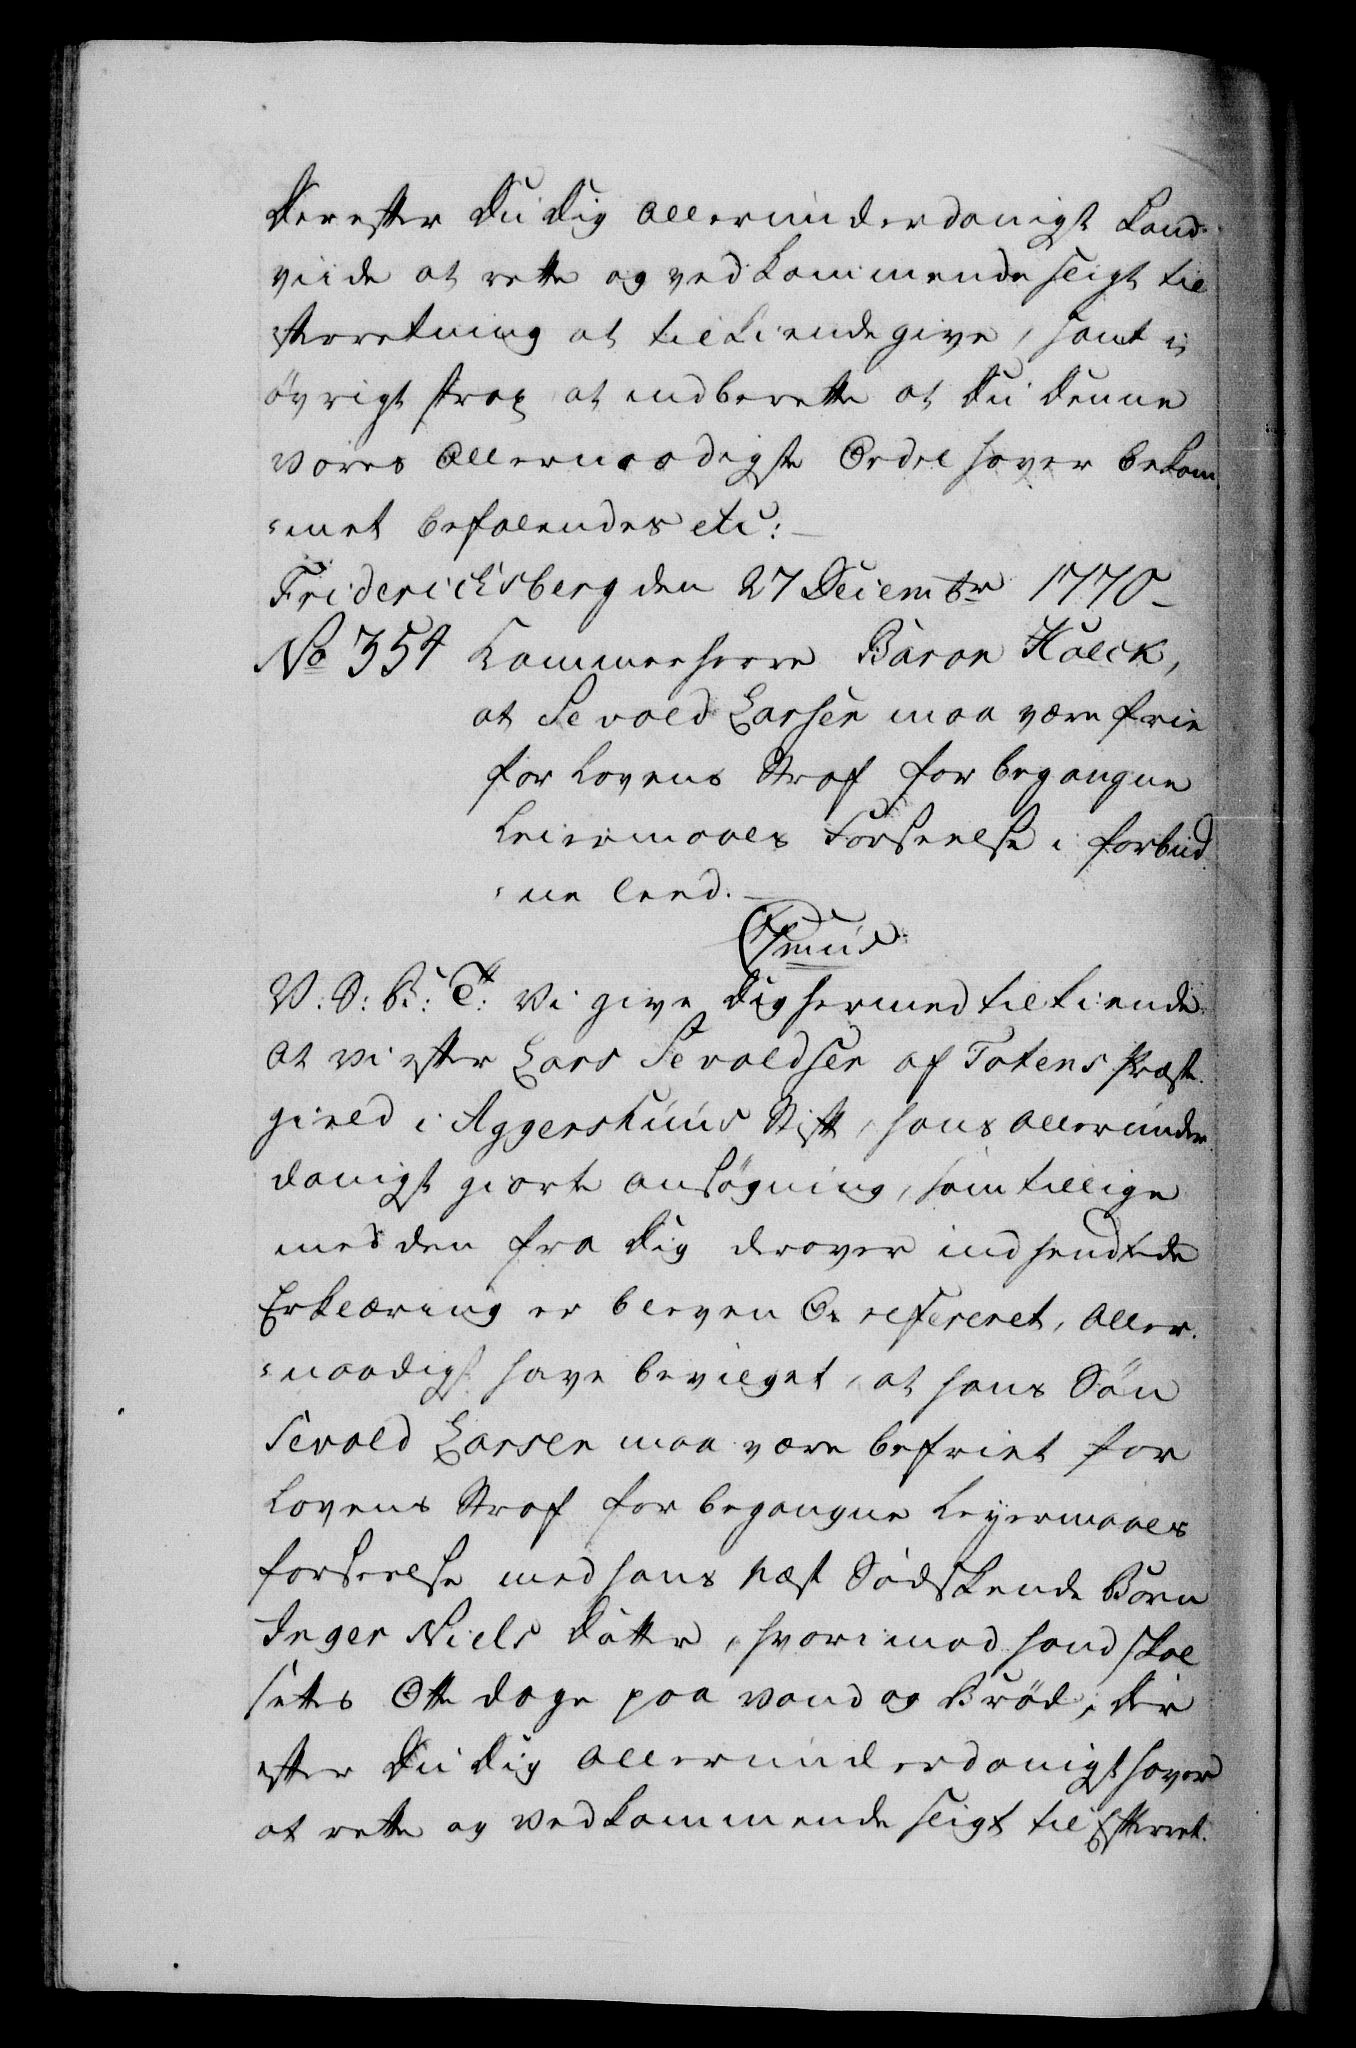 Derefter Du Dig allerunderdanigst haver
viide at rette og vedkommende sligt til
efterretning at tilkiendegive, samt i
övrigt strax at indberette at Du denne
vores allernaadigste Ordre haver bekom
=met befalendes etc:
Fridericksberg den 27 Decembr 1770
No 354 Kammerherre Baron Hulck,
at Sevold Larsen maa være frie
for Lovens Straf for begangne
Leiermaals Forseelse i forbud
=ne leed.
V: S: G: T: Vi give Dig hermed tilkiende
at vi efter Lars Sevoldsen af Totens Præste
gield i Aggershuus Stift, hans allerunder
danigst giorte ansögning, som tillige
med den fra Dig derover indsendte
Erklæring er bleven Os refereret, aller
=naadigst have bevilget, at hans Sön
Sevold Larsen maa være befriet for
Lovens Straf for begangne Leyermaals
forseelse med hans næst Södskende Börn
Inger Niels Datter, hvorimod hand skal
settes Otte dage paa vand og Bröd, der
efter Du Dig allerunderdanigst haver
at rette og vedkommende sligt til Efterret